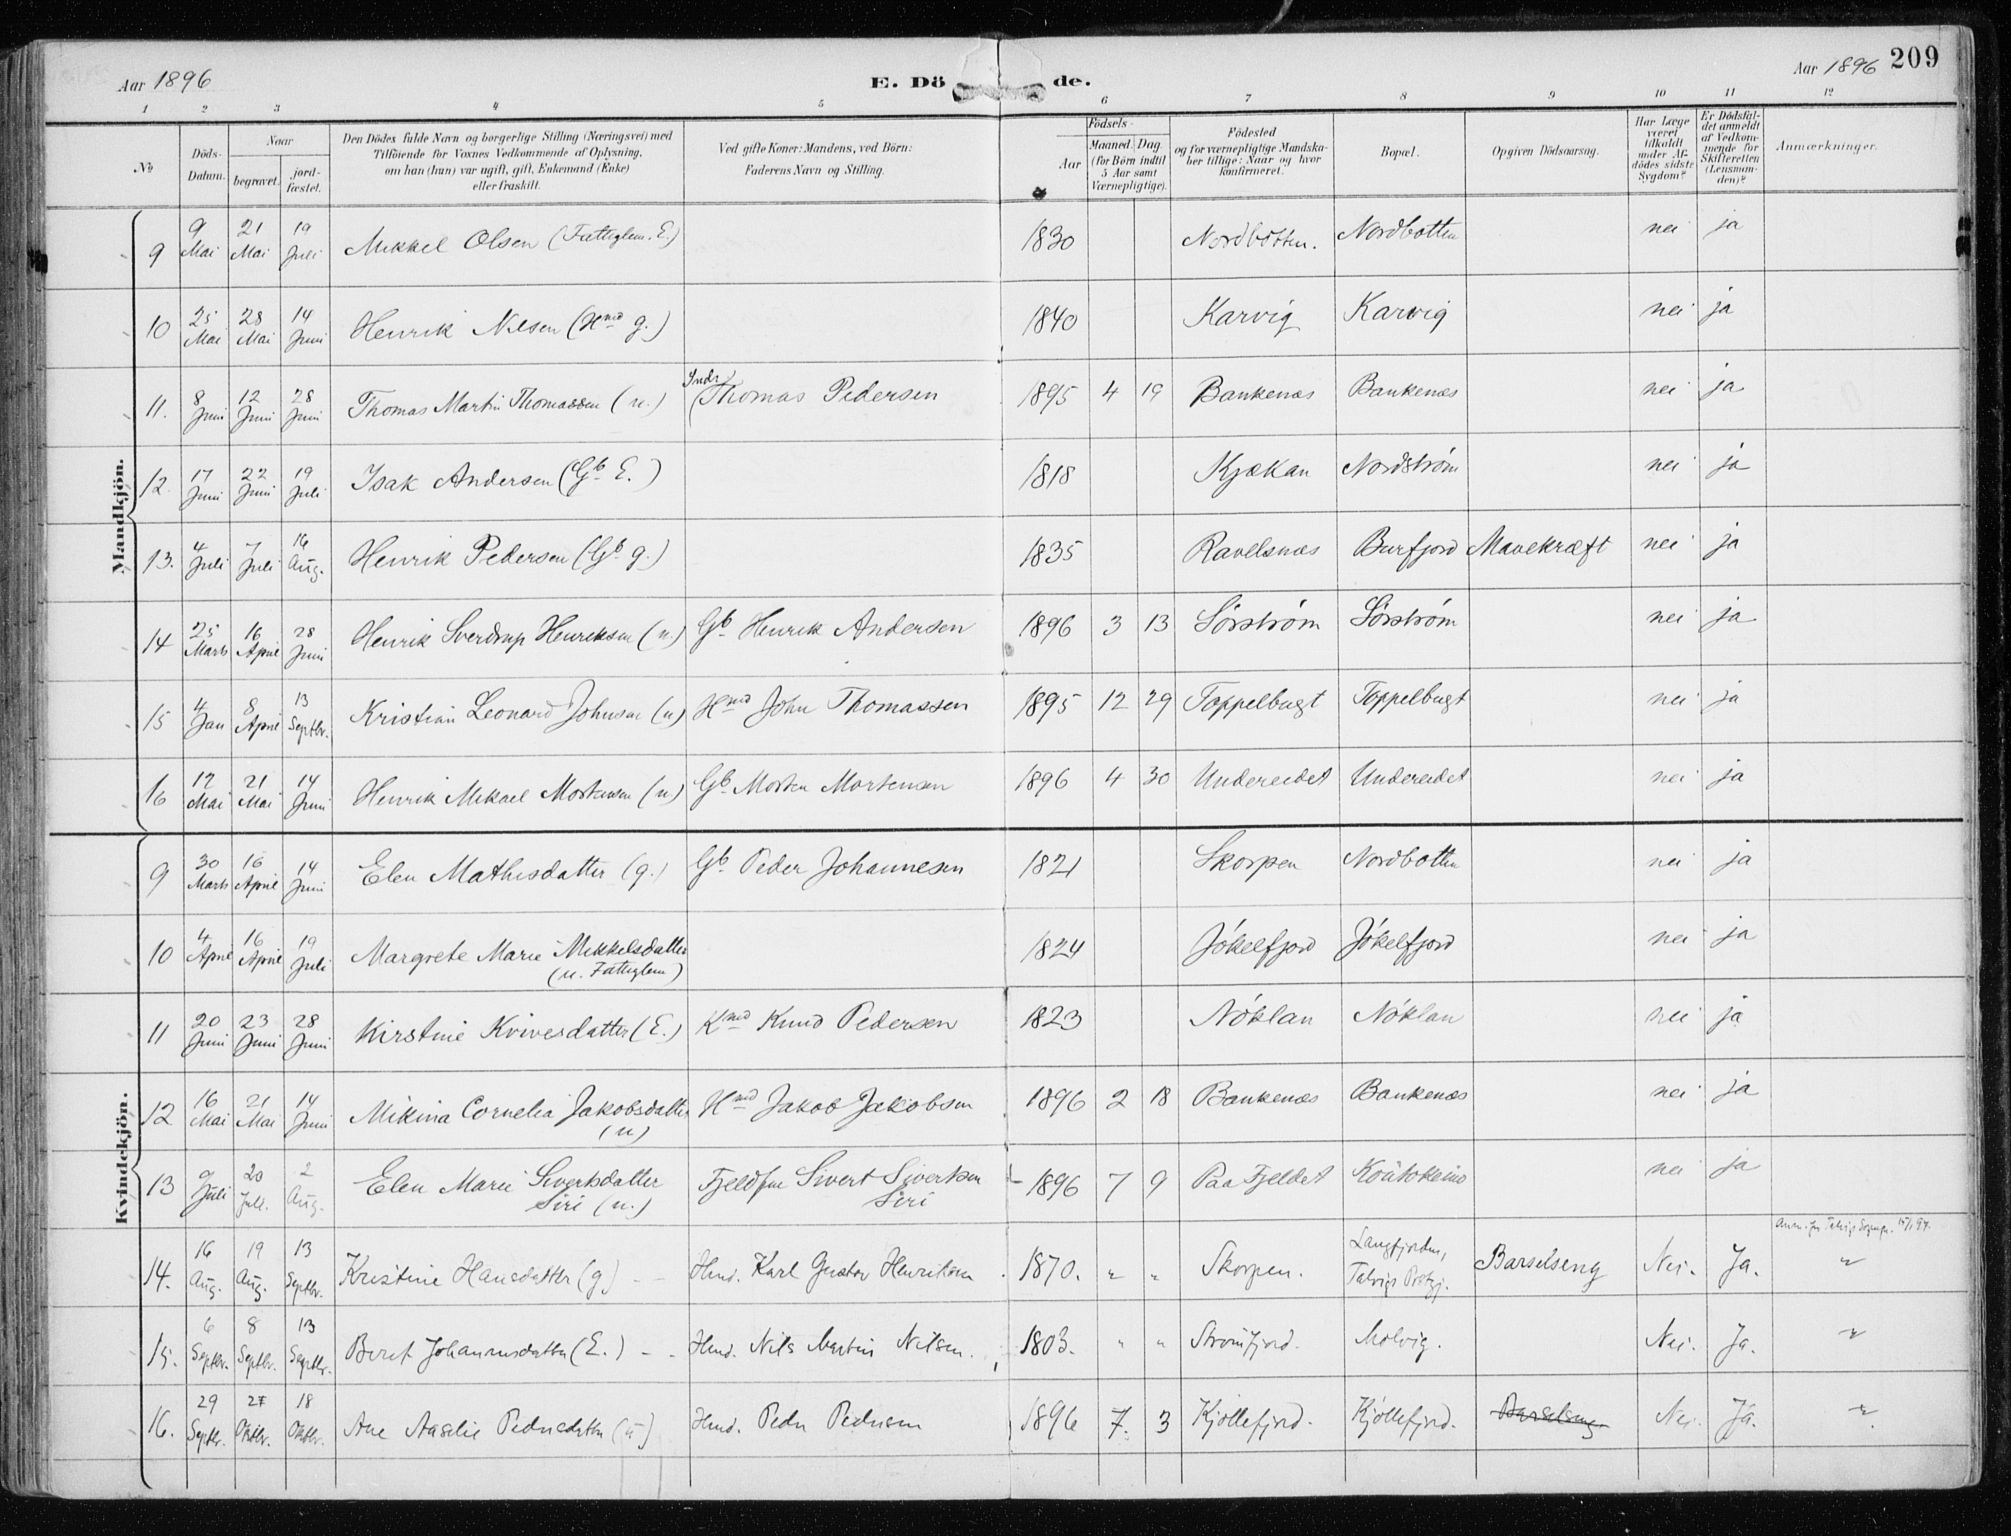 Aar 1896 E. Dö de. Aar 1896 209
1 2 3 4 5 6 7 8 9 10 11 12
No Döds-Datum. Naar begravet. jord-fæstet. Den Dödes fulde Navn og borgerlige Stilling (Næringsvei) med Tilföiende for Voxnes Vedkommende af Oplysning, om han (hun) var ugift, gift, Enkemand (Enke) eller fraskilt. Ved gifte Koner: Mandens, ved Börn: Faderens Navn og Stilling. Födsels- Aar Maaned. Dag. (for Börn indtil 5 Aar samt Værnepligtige). Födested og for værnepligtige Mandskaber tillige: Naar og hvor konfirmeret. Bopæl. Opgiven Dödsaarsag. Har Læge været tilkaldt under Afdödes sidste Sygdom? Er Dödsfaldet anmeldt af Vedkommende for Skifteretten (Lensmanden)? Anmærkninger.
Mandkjön.
9 9 Mai 21 Mai 19 Juli Mikkel Olsen (Fattiglem. E.) 1830 Nordbotten. Nordbotten nei ja
10 25 Mai 28 Mai 14 Juni Henrik Nilsen (Hmd g.) 1840 Karvig Karvig nei ja
11. 8 Juni 12 Juni 28 Juni Thomas Martin Thomassen (u.) Indr. Thomas Pedersen 1895 4 19 Bankenæs Bankenæs nei ja
12. 17 Juni 22 Juni 19 Juli Isak Andersen (Gb. E.) 1818 Kjækan Nordstrøm nei ja
13. 4 Juli 7 Juli 16 Aug. Henrik Pedersen (Gb. g.) 1835 Ravelsnæs Burfjord Mavekræft nei ja
14 25 Marts 16 April 28 Juni Henrik Sverdrup Henriksen (u) Gb. Henrik Andersen 1896 3 13 Sörström Sörström nei ja
15 4 Jan 8 April 13 Septbr. Kristian Leonard Johnsen (u) Hmd John Thomassen 1895 12 29 Toppelbugt Toppelbugt nei ja
16 12 Mai 21 Mai 14 Juni Henrik Mikael Mortensen (u) Gb. Morten Mortensen 1896 4 30 Undereidet Undereidet nei ja
Kvindekjön.
9 30 Marts 16 April 14 Juni Elen Mathisdatter (g.) Gb. Peder Johannesen 1821 Skorpen Nordbotten nei ja
10 4 April 16 April 19 Juli Margrete Marie Mikkelsdatter (u. Fattiglem) 1824 Jökelfjord Jökelfjord nei ja
11 20 Juni 23 Juni 28 Juni Kirstine Kvivesdatter (E.) Kmd Knud Pedersen 1823 Nöklan Nöklan nei ja
12 16 Mai 21 Mai 14 Juni Mikina Cornelia Jakobsdatter (u) Hmd Jakob Jakobsen 1896 2 18 Bankenæs Bankenæs nei ja
13 9 Juli 20 Juli. 2 Aug. Elen Marie Sivertsdatter Siri (u.) Fjeldfin Sivert Sivertsen Siri 1896 7 9 Paa Fjeldet Koutokeino nei ja
14. 16 Aug. 19 Aug. 13 Septbr. Kristine Hansdatter (g) Hmd. Karl Gustav Henriksen 1870. " " Skorpen. Langfjorden, Talvigs Prstgj. Barselseng Nei. Ja. "
15. 6 Septbr. 8 Septbr. 13 Septbr. Berit Johannesdatter (E.) Hmd. Nils Martin Nilsen. 1803. " " Strömfjord. Molvig. Nei. Ja. "
16. 29 Septbr. 27 Oktbr. 18 Oktbr. Ane Aaselie Pedersdatter (u) Hmd. Peder Pedersen 1896 7. 3 Kjöllefjord. Kjöllefjord. Barselseng Nei. Ja. "